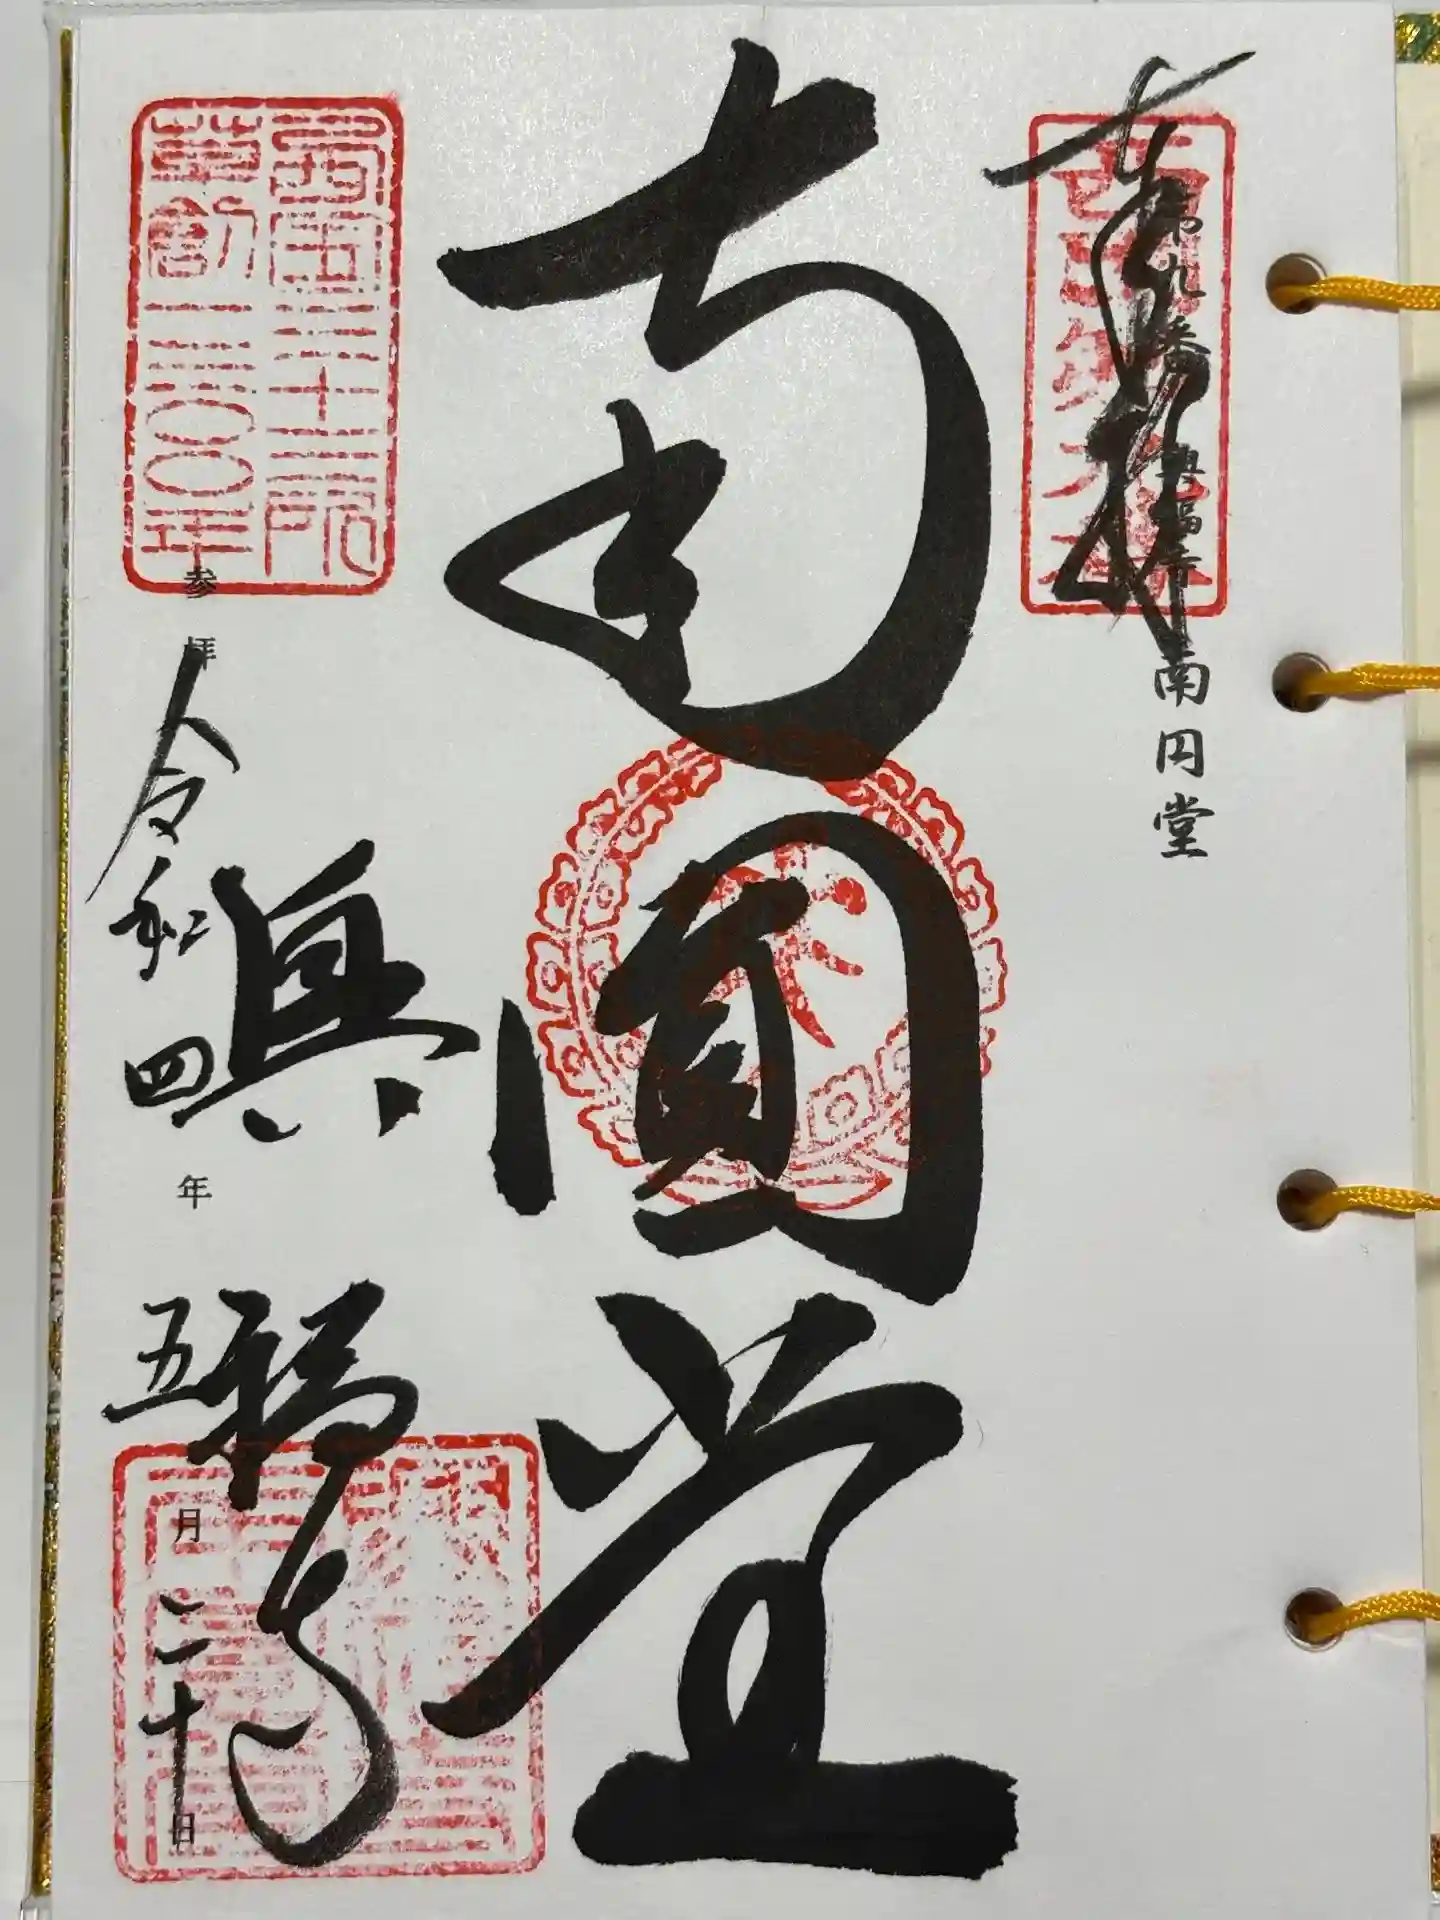 奉拝
第九番 興福寺 南円堂
西国第九番
南圓堂
西国三十三所
草創一三〇〇年
興福寺
参拝 令和四年五月二十日